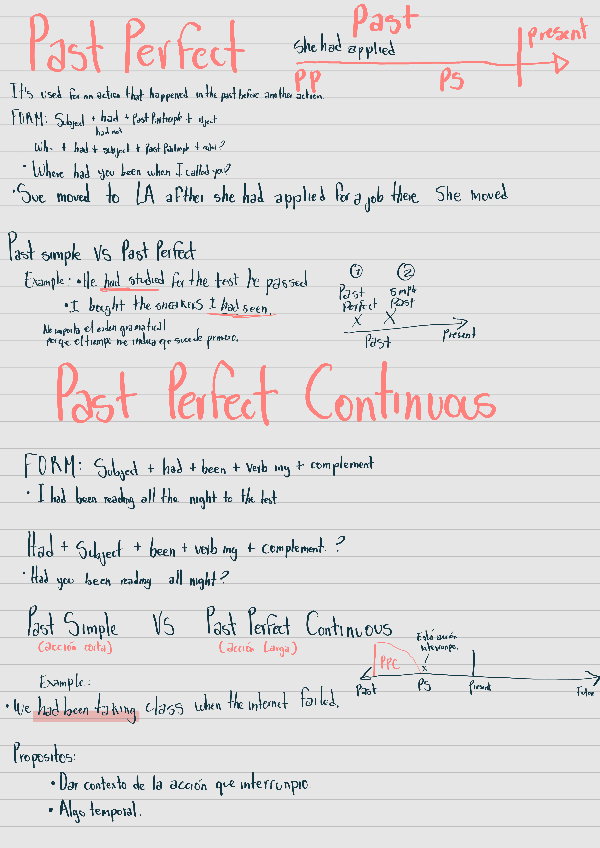 Past Perfect
Past
she had applied
present
PP
PS
It's used for an action that happened in the past before another action.
FORM: Subject + had + Past Participle + object
had not
Wh. + had + subject + Past Participle + ?
• Where had you been when I called you?
• Sue moved to LA afther she had applied for a job there She moved
Past simple VS Past Perfect
Example: • He had studied for the test he passed
• I bought the sneakers I had seen.
No importa el orden gramatical
porque el tiempo me indica que sucede primero.
1
2
Past Perfect
Simple Past
X X
Past
Present
Past Perfect Continuous
FORM: Subject + had + been + verb ing + complement
• I had been reading all the night to the test
Had + Subject + been + verb ing + complement. ?
• Had you been reading all night?
Past Simple VS Past Perfect Continuous
(acción corta)
(acción Larga)
Está acción
interrumpe.
PPC
x
Past
PS
Present
Futur
Example:
• We had been taking class when the internet failed.
Propositos:
• Dar contexto de la acción que interrunpio
• Algo temporal.